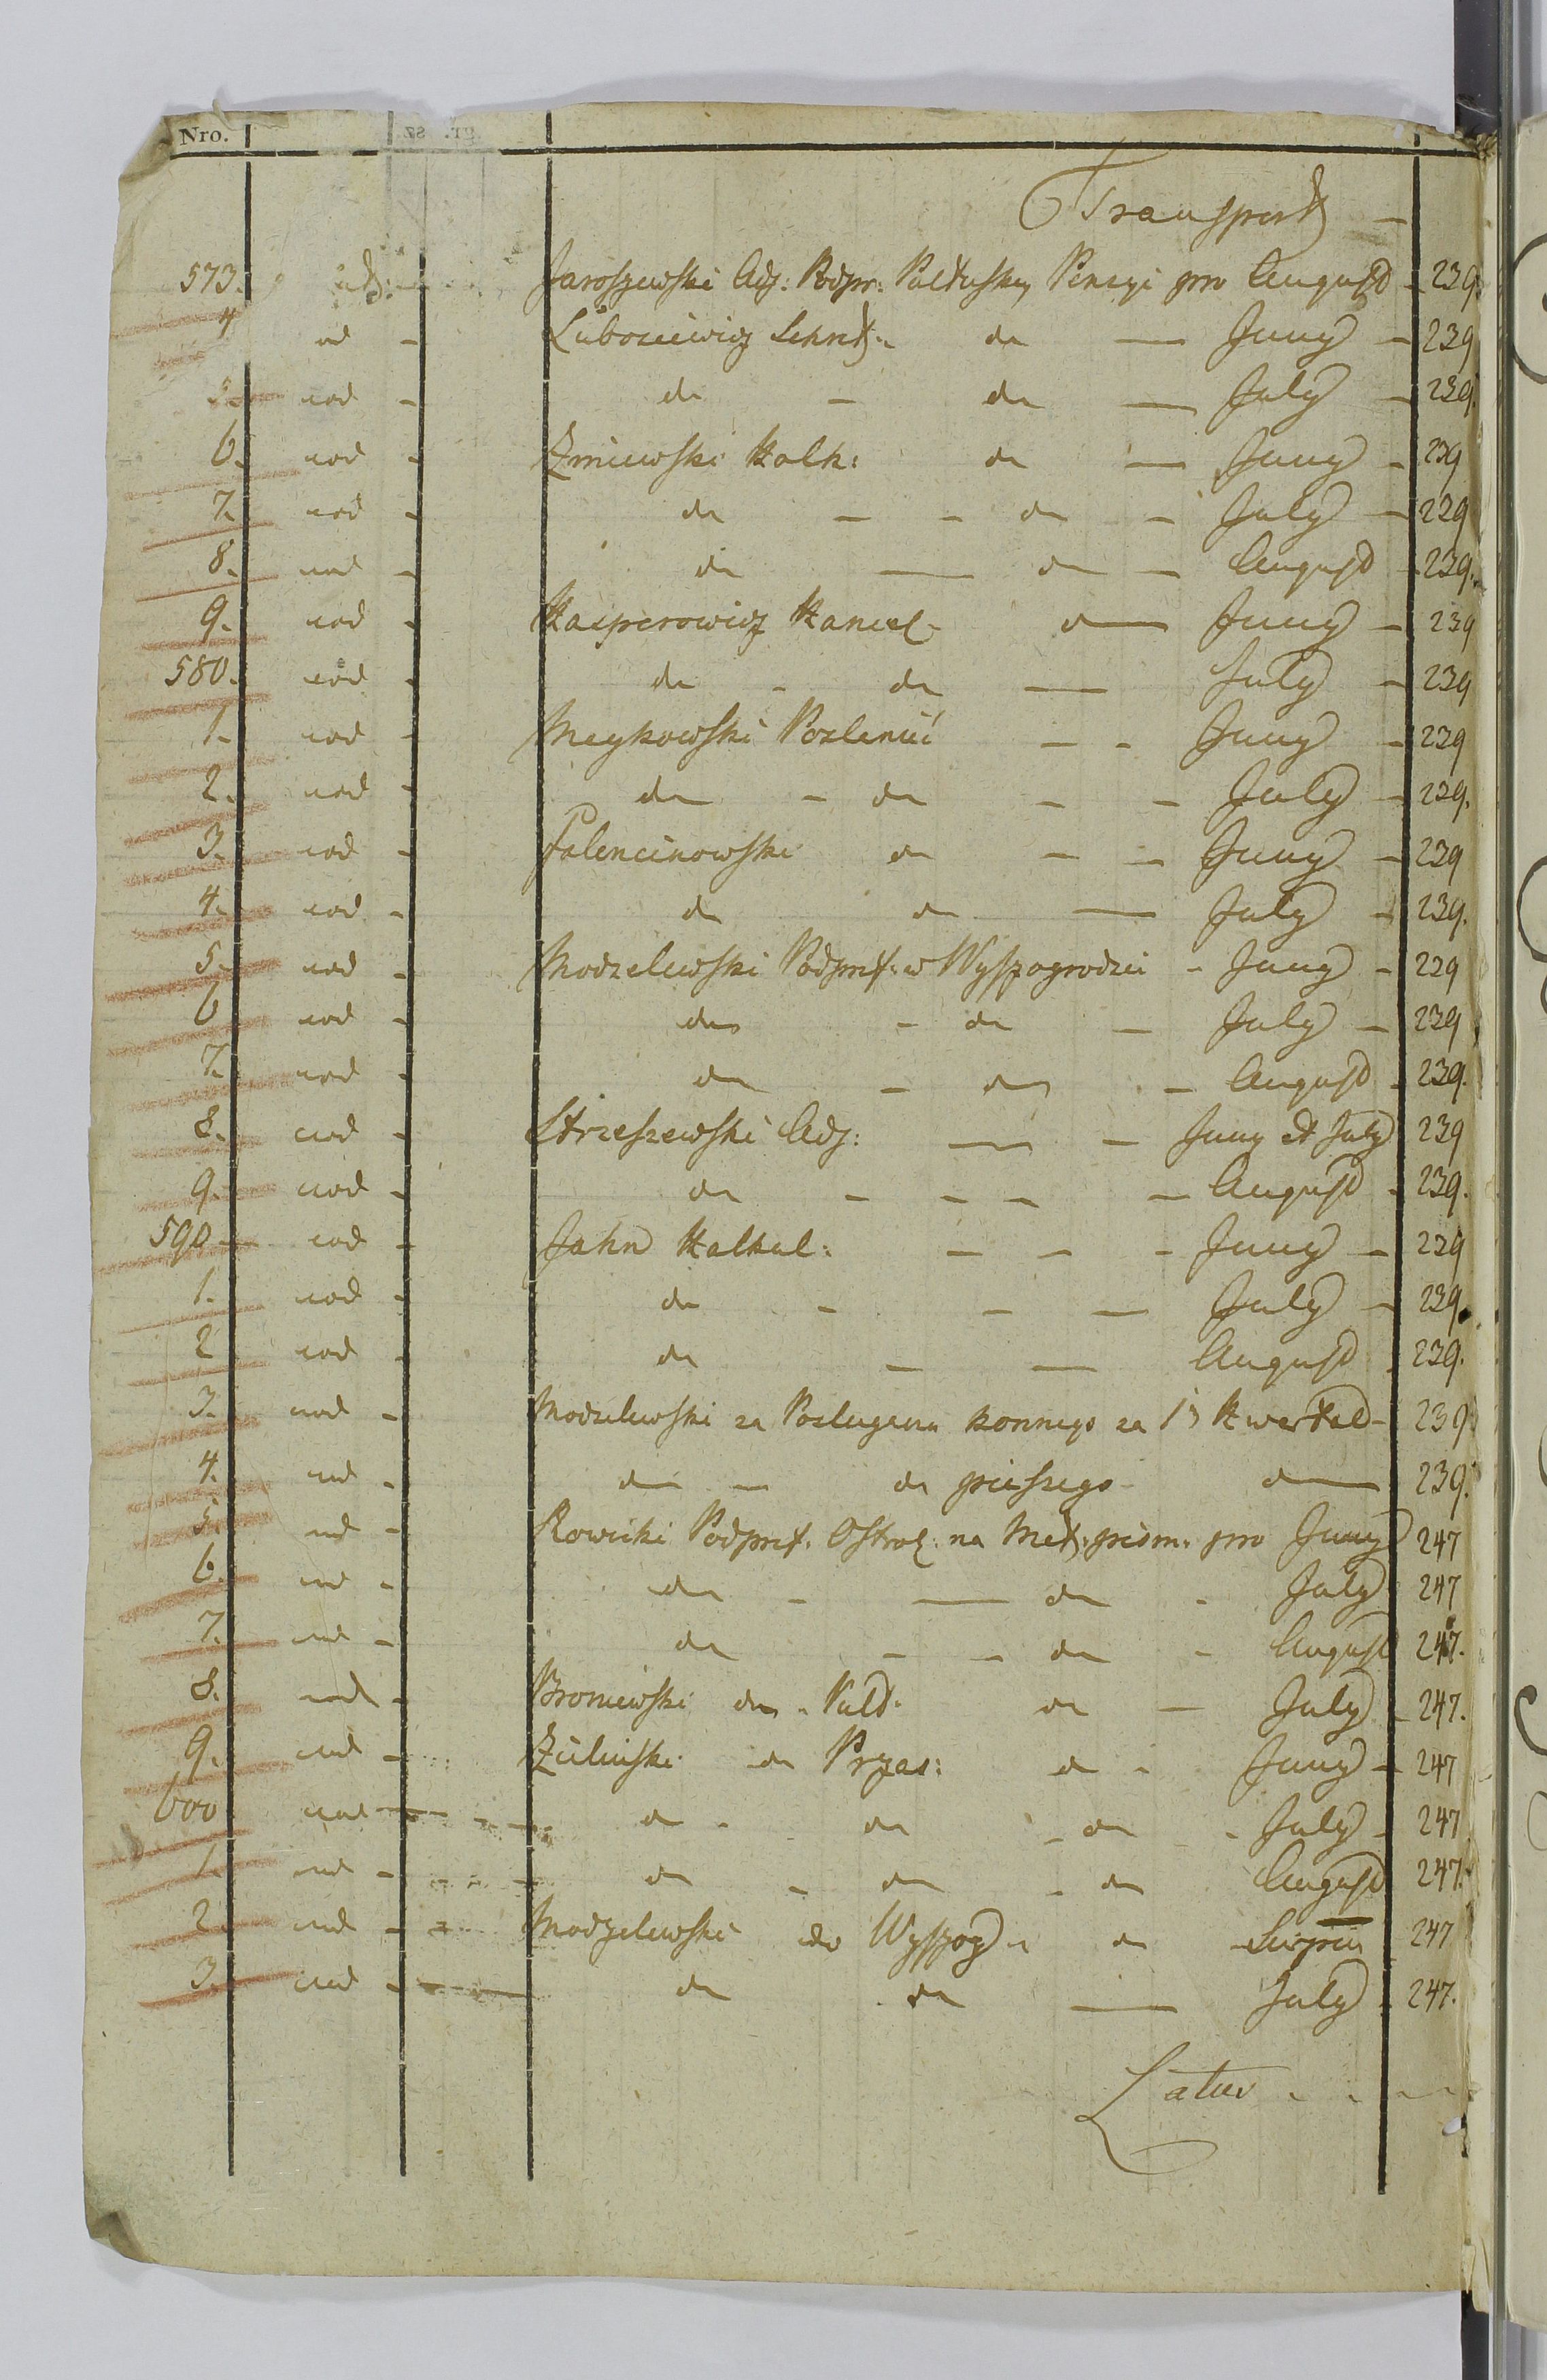 Nro.
Transport —
573. ut: Jaroszewski Adj: Podpr: Pułtuskiy Pensyi pro August — 239.
4 eod — Lubosciewicz Sekret: do — Juny — 239
5. eod — do — do — July — 239.
6. eod — Zmiewski Kalk: do — Juny — 239
7. eod — do — — do — July — 239
8. eod — do — do — August — 239.
9. eod — Kasperowicz Kancel. do — Juny — 239
580. eod — do — do — July — 239
1. eod — Meykowski — — Juny — 239
2. eod — do — do — — July — 239.
3. eod — Falencinowski do — — Juny — 239
4. eod — do do — July — 239.
5. eod — Modzelewski Podpref. w Wyszogrodzie — Juny — 239
6 eod — do — do — July — 239
7. eod — do — do — August — 239.
8. eod — Strzeszewski Adj: — — Juny et July 239
9. eod — do — — — — August — 239.
590 — eod — Jahn Kalkul: — — — Juny — 239
1. eod — do — — — July — 239.
2 eod — do — — August — 239.
3. eod — Modzelewski za Poslugacza konnego za 1 Kwartal — 239.
4. eod — do — do pieszego — do — 239.
5. eod — Rowicki Podpref. Ostroł: na Mat: pism. pro Juny 247
6. eod — do — — do — July 247
7. eod — do — — do — August 247.
8. eod — Broniewski do — Pułt. do — July — 247.
9. eod — Zieliński do Przas: do — Juny — 247
600 eod — do — do — do — July — 247
1. eod — do — do — do August 247.
2. eod — Modzelewski do Wyszog: do — Sierpień 247
3. eod — do do — July — 247.
Latus - - -